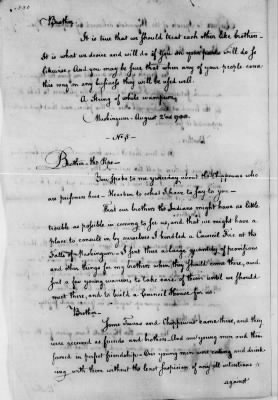 Brother
It is true that we should treat each other like brothers
It is what we desire and will do if you on your parts will do so
likewise. And you may be sure that when any of your people come
this way on any business they will be used well.
A String of white wampum
Muskingum August 2d
No. 5
Brother the Pipe
You spoke to me yesterday about the Chippewas who
are prisoners here — Hearken to what I have to say to you —
That our brothers the Indians might have as little
trouble as possible in coming to see us, and that we might have a
place to consult in by ourselves I kindled a Council Fire at the
Falls of Muskingum — I sent there a large quantity of provisions
and other things for my brothers when they should come there, and
just a few young warriors to take care of them until we should
meet there, and to build a Council House for us.
Brother
Some Tawas and Chippewas came there, and they
were received as friends and brothers. And our young men and they
lived in perfect friendship. Our young men were eating and drink-
ing with them without the least suspicion of any ill intentions
against